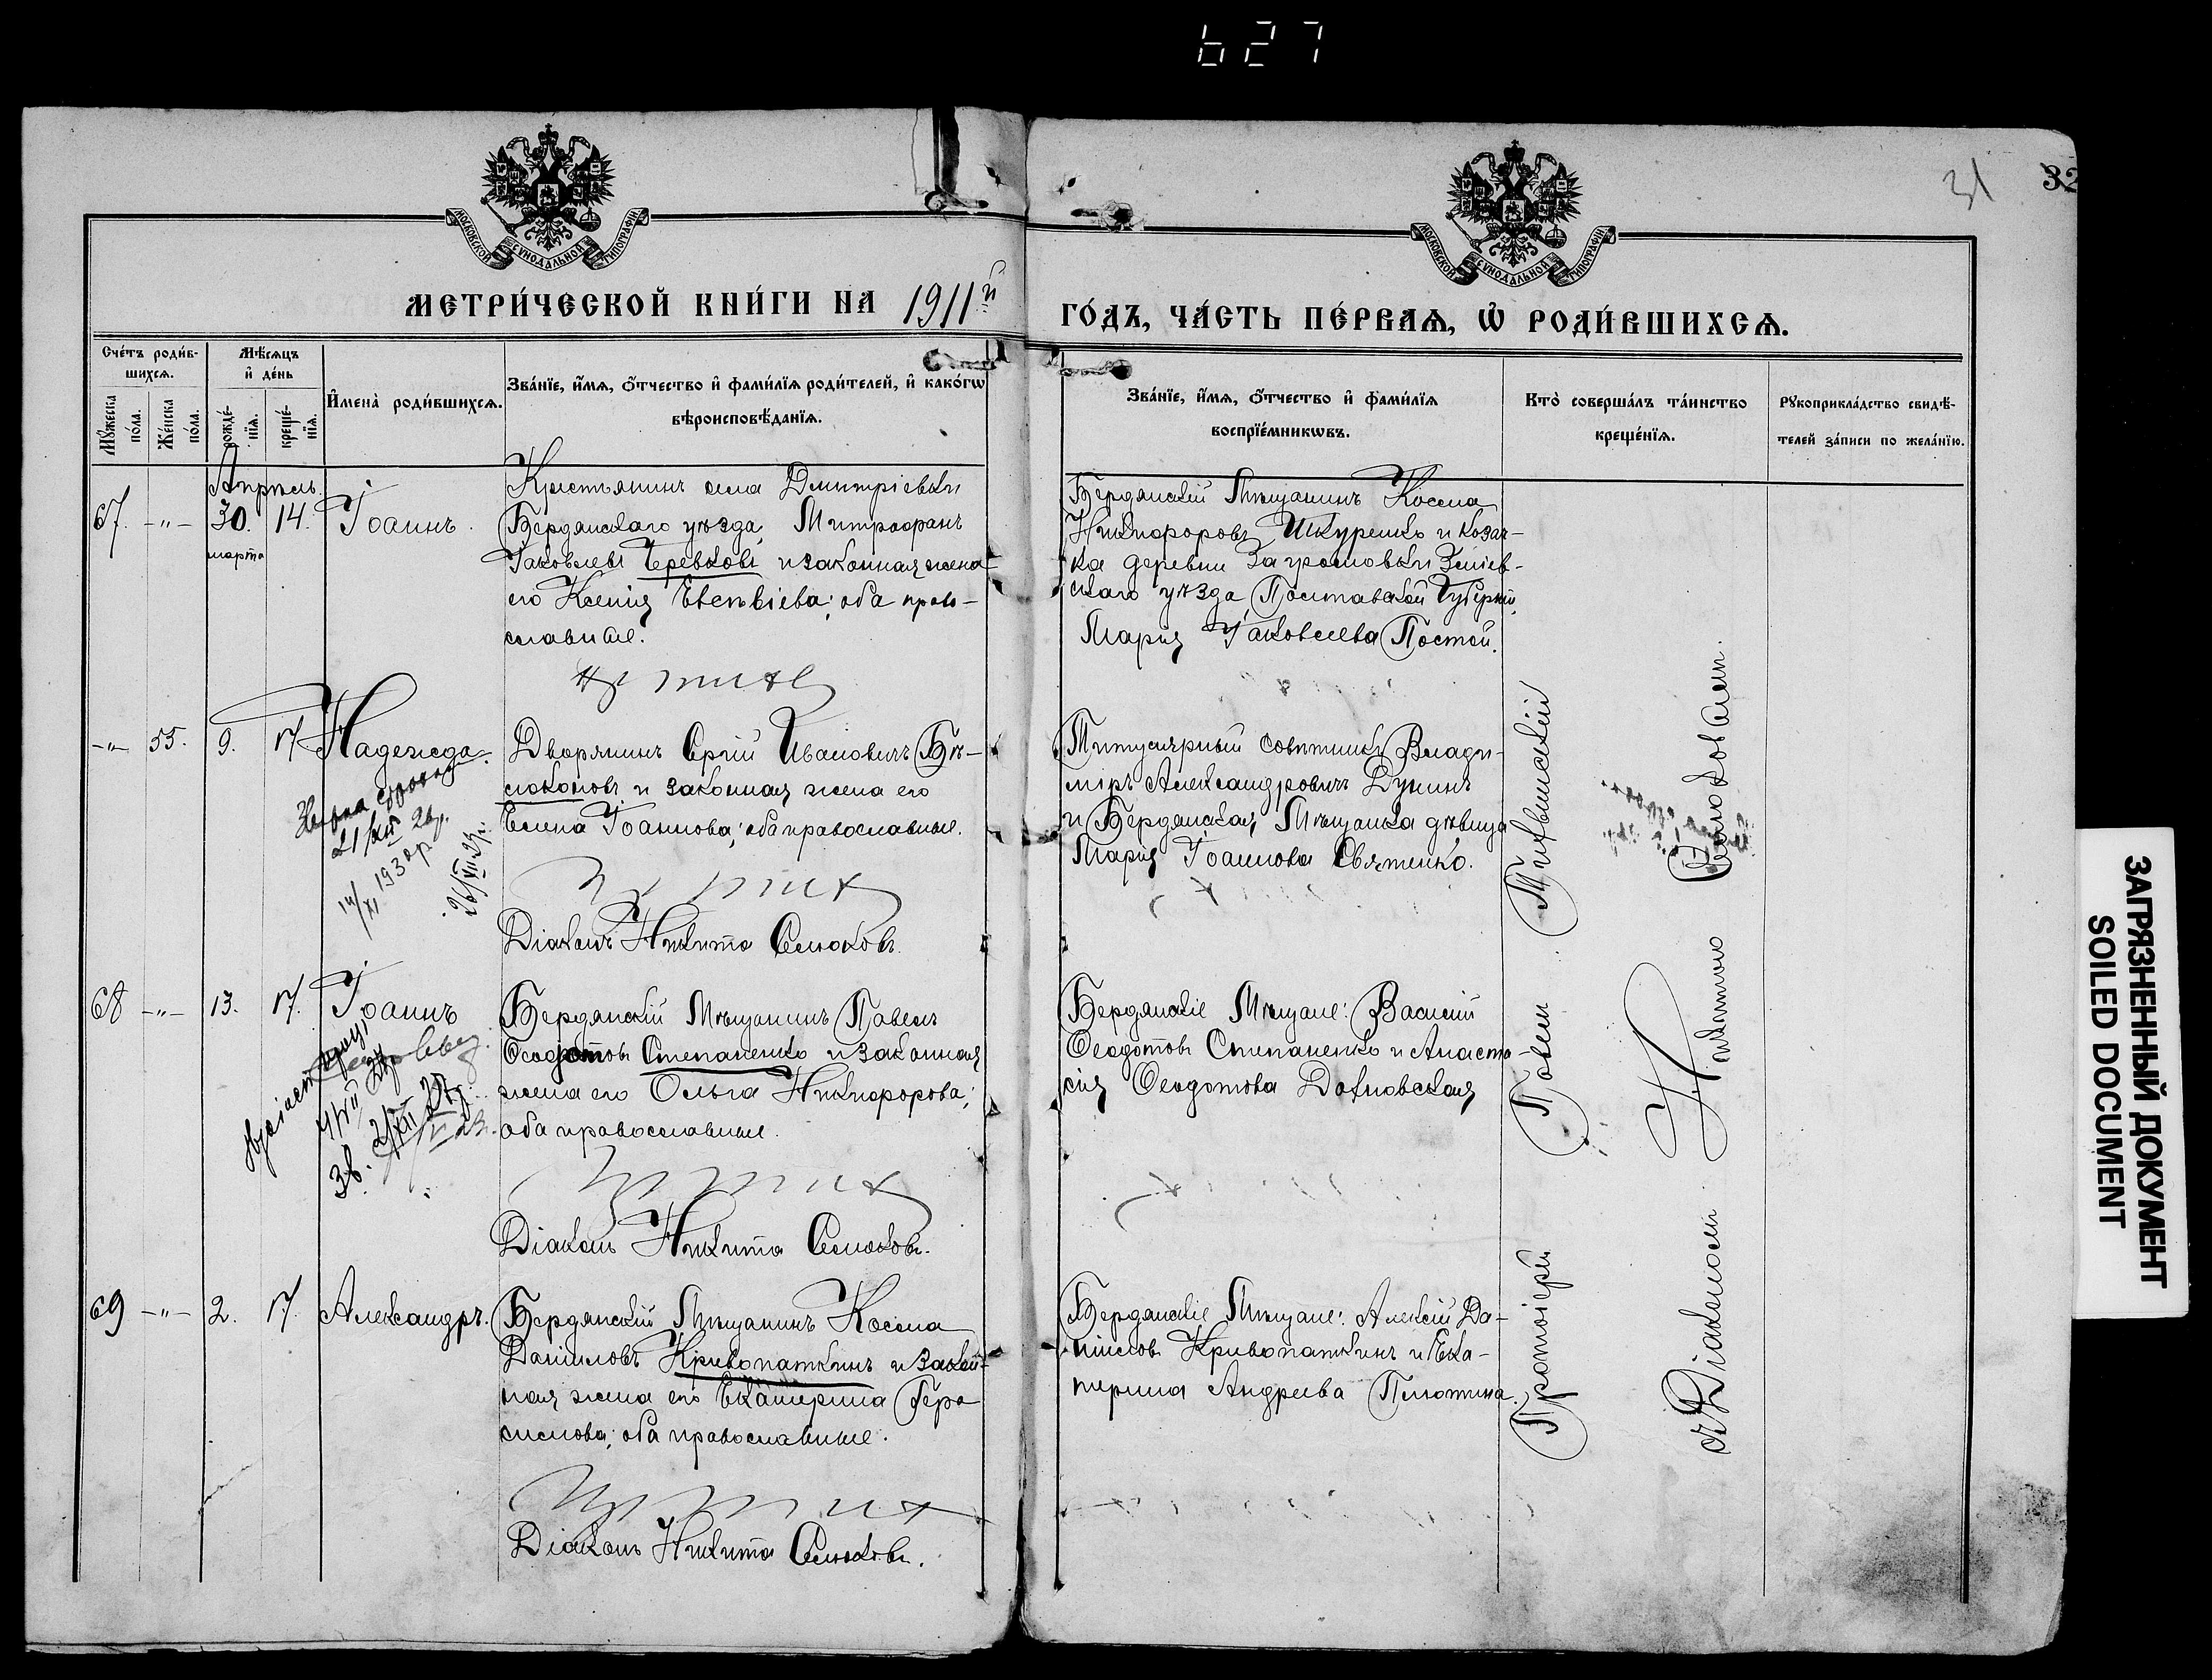 627
31
32
МОСКОВСКОЙ СѴНОДАЛЬНОЙ ТИПОГРАФІИ
МОСКОВСКОЙ СѴНОДАЛЬНОЙ ТИПОГРАФІИ
МЕТРИ́ЧЕСКОЙ КНИ́ГИ НА 1911й
ГО́ДЪ, ЧА́СТЬ ПЕ́РВАѦ, Ѡ҆ РОДИ́ВШИХСѦ.
Сче́тъ роди́в-
шихсѧ.
Мꙋ́жеска по́ла.
Же́нска по́ла.
Мѣ́сѧцъ
и҆ де́нь
рожде́-
нїѧ.
креще́-
нїѧ.
И҆мена̀ роди́вшихсѧ.
Зва́нїе, и҆́мѧ, ѻ҆́тчество и҆ фами́лїѧ роди́телей, и҆ како́гѡ
вѣроисповѣ́данїѧ.
Зва́нїе, и҆́мѧ, ѻ҆́тчество и҆ фами́лїѧ
воспрїе́мникѡвъ.
Кто̀ соверша́лъ та́инство
креще́нїѧ.
Рꙋкоприкла́дство свидѣ́-
телей за́писи по жела́нїю.
Апрѣль
67. -"- 30. 14. Іоаннъ.
марта
Крестьянинъ села Дмитріевки
Бердянскаго уѣзда, Митрофанъ
Іаковлевъ Черевковъ и законная жена
его Ксенія Евсевіева; оба право-
славные.
Бердянскій Мѣщанинъ Косма
Никифоровъ Шкуренко и козач-
ка деревни Загромовки Зѣньев-
скаго уѣзда Полтавской Губерніи,
Марія Іаковлева Постой.
-"- 55. 9. 17 Надежда.
21/XII 26р.
14/XI 1930р.
26/VII 29г.
Дворянинъ Сергій Ивановичъ Бѣ-
локоновъ и законная жена его
Елена Іоаннова; оба православные.
Діаконъ Никита Семоковъ.
Титулярный совѣтникъ Влади-
міръ Александровичъ Дунинъ
и Бердянская Мѣщанка дѣвица
Марія Іоаннова Святенко.
68 -"- 13. 17. Іоаннъ
Бердянскій Мѣщанинъ Павелъ
Ѳеодотовъ Степаненко и законная
жена его Ольга Никифорова;
оба православные.
Діаконъ Никита Семоковъ.
Бердянскіе Мѣщане: Василій
Ѳеодотовъ Степаненко и Анаста-
сія Ѳеодотова Довновская
69 -"- 2. 17. Александръ.
Бердянскій Мѣщанинъ Косма
Даниловъ Кривопаткинъ и закон-
ная жена его Екатерина Гера-
симова; оба православные.
Діаконъ Никита Семоковъ.
Бердянскіе Мѣщане: Алексій Да-
ниловъ Кривопаткинъ и Ека-
терина Андреева Плотина.
Протоіерей Павелъ
съ Діакономъ Никитою
ЗАГРЯЗНЕННЫЙ ДОКУМЕНТ
SOILED DOCUMENT